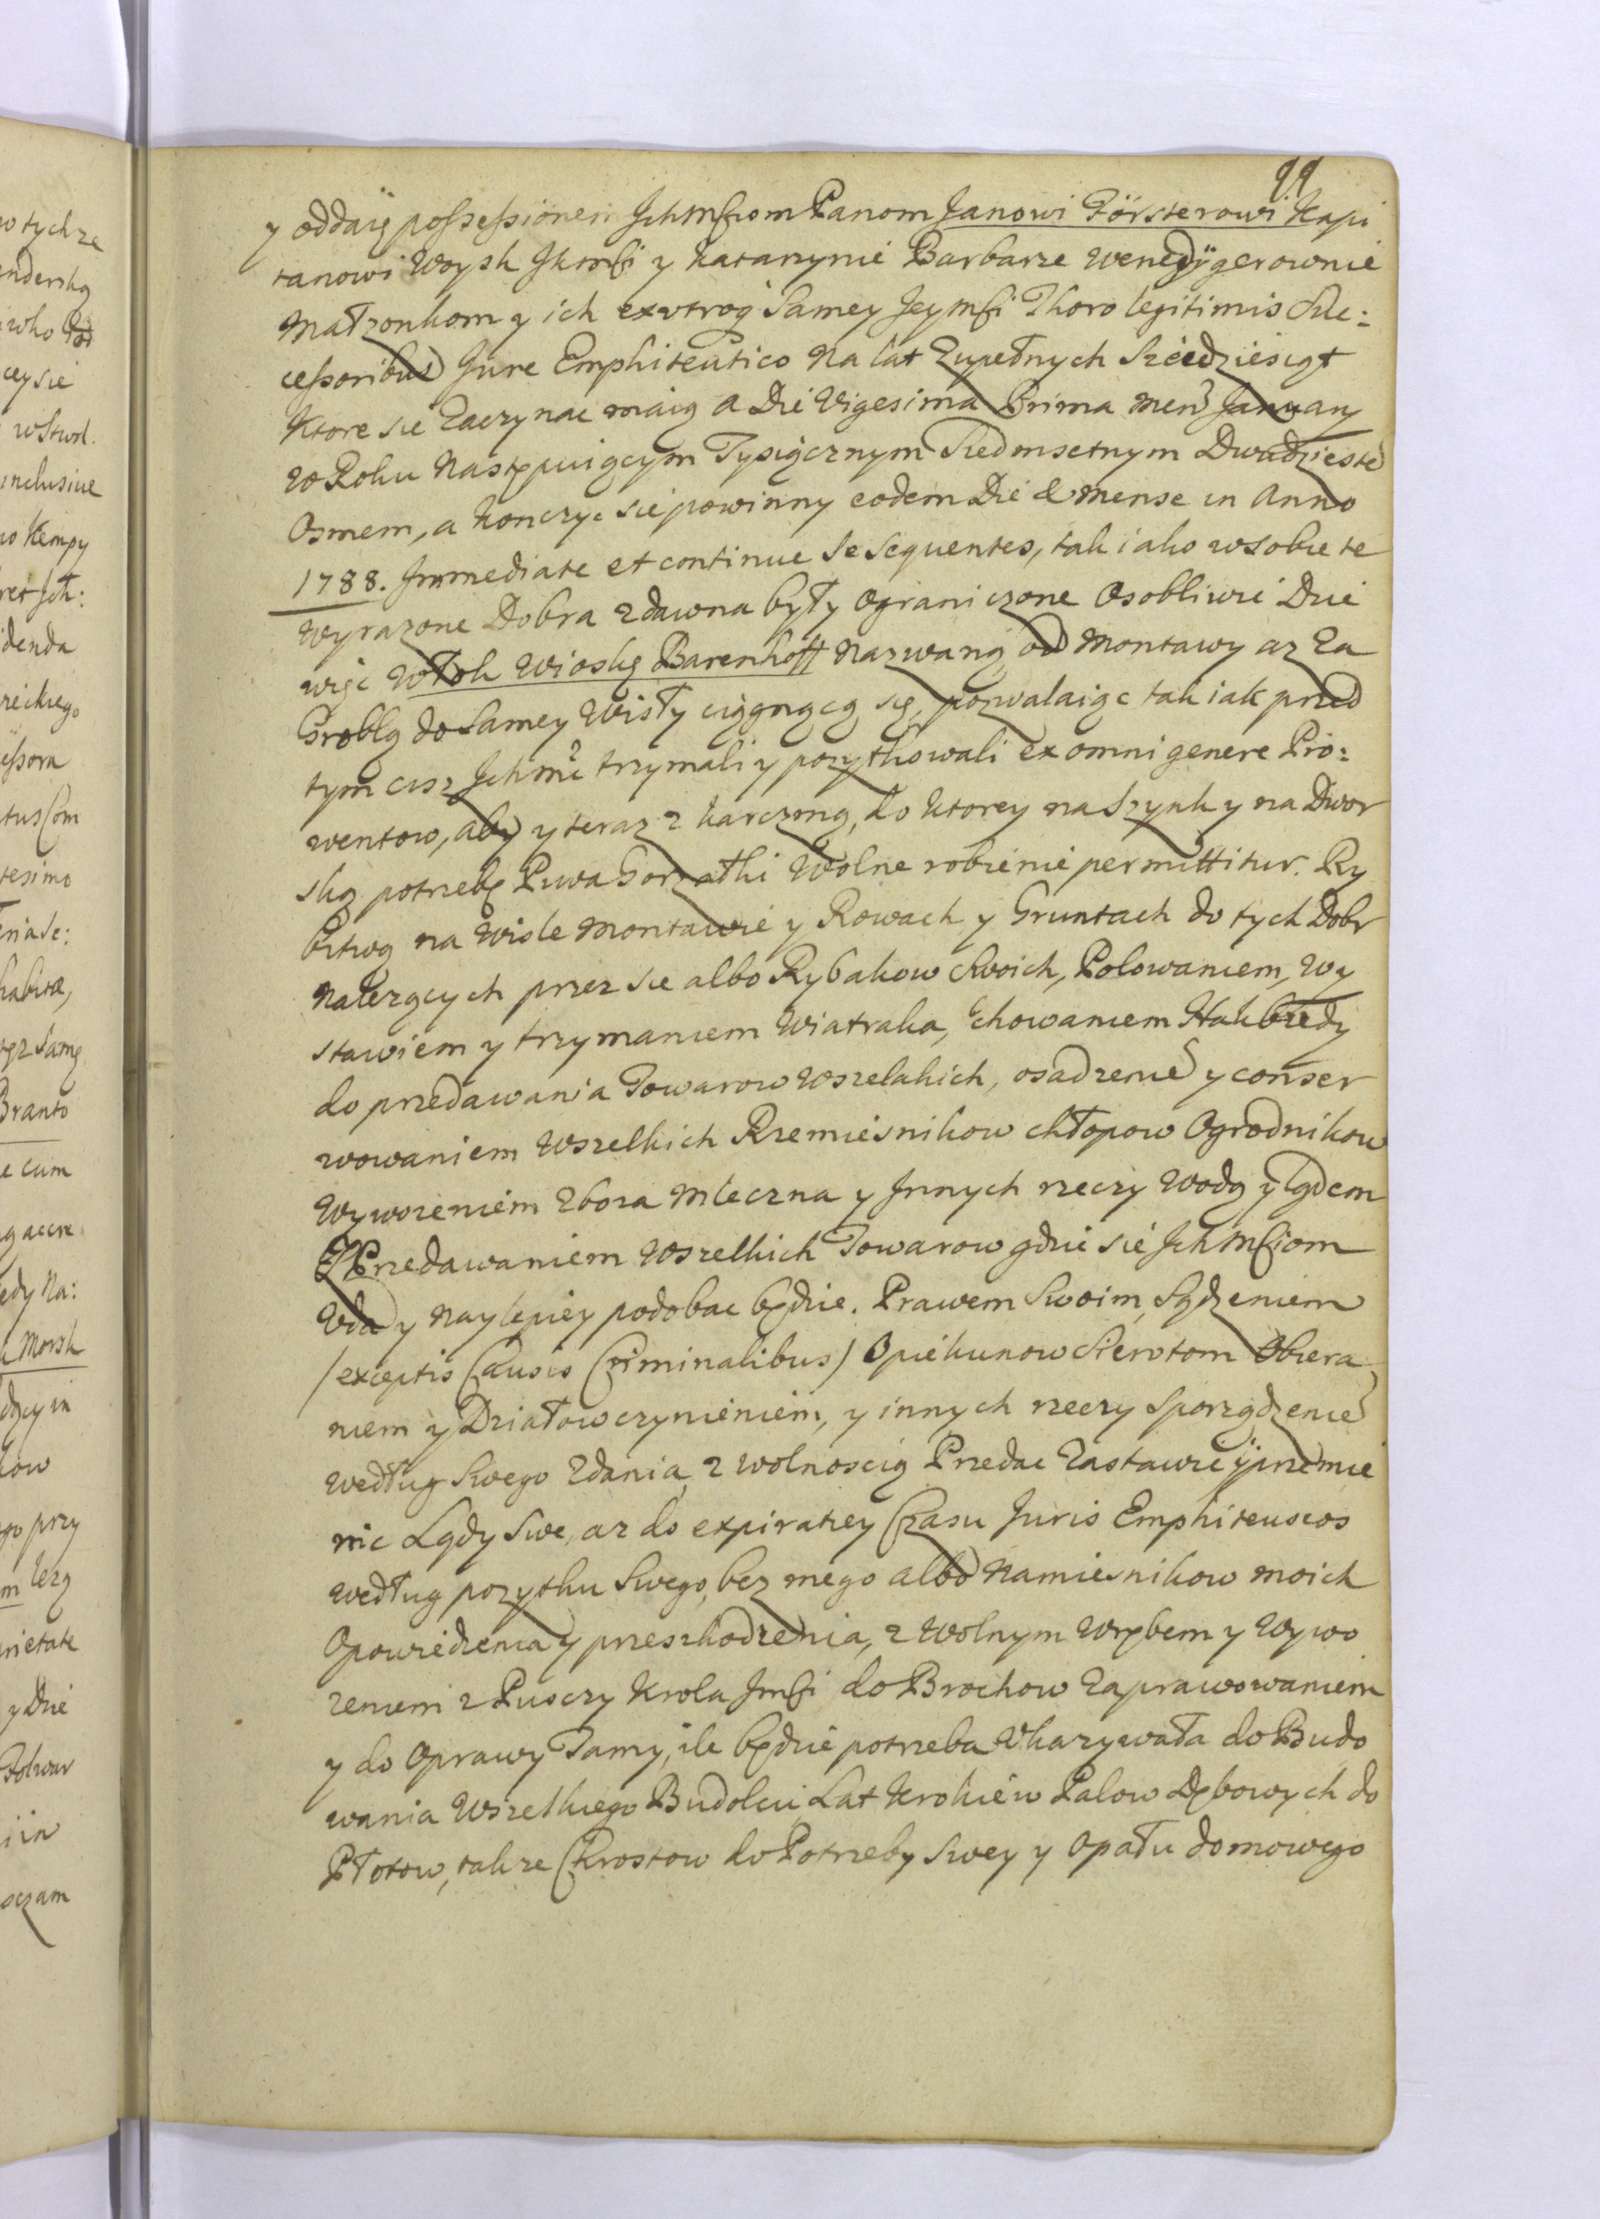 99
y oddaię possessionem Ichmściom Panom Janowi Försterowi Kapi
tanowi Woysk Ikrmści y Katarzynie Barbarze Wenedÿgerownie
Małzonkom y ich ex utroq Samey Jeymści Thoro legitimis Suc:
cessoribus Jure Emphiteutico na lat Zupełnych Sześdziesiąt
Ktore się Zaczynac maią a Die Vigesima Prima mens January
w Roku Następuiącym Tysiącznym Siedmsetnym Dwudzieste
Osmem, a Konczyc się powinny eodem Die & mense in Anno
1788. Immediate et continue se sequentes, tak iako w sobie te
Wyrazone Dobra zdawna były Ograniczone Osobliwie Die
więc Wtok Wioskę Barenhoff Nazwaną od Montawy az Za
Groblą do Samey Wisły ciągnącą się, pozwalaiąc tak iak przed
tym cisz Ichmc trzymali y pozytkowali ex omni genere Pro:
wentow, aby y teraz z karczmą, do ktorey na Szynk y na Dwor
ską potrzebę Piwa Gorzałki Wolne robienie permittitur. Ry
bitwą na Wisle Montawie y Rowach y Gruntach do tych Dobr
Nalezących przez się albo Rybakow Swoich, Polowaniem, Wy
stawiem y trzymaniem Wiatraka, chowaniem Hakbudy
do przedawania Towarow Wszelakich, osadzenie y conser
wowaniem Wszelkich Rzemiesnikow chłopow Ogrodnikow
Wywozeniem Zboza Mleczna y Innych rzeczy Wodą y Lądem
Przedawaniem Wszelkich Towarow gdzie się Ichmściom
Uda y naylepiey podobac będzie. Prawem Swoim, Sądzeniem
/exceptis Causis Criminalibus/ Opiekunow Sierotom Obiera
niem y Działow czynieniem, y innych rzeczy Sporządzenie
według Swego Zdania, z wolnoscią Przedac Zastawic ÿ przemie
nic Lądy Swe, az do expiratiey Czasu Juris Emphiteuseos
według pozytku Swego, bez mego albo Namiesnikow moich
Opowiedzenia y przeszkodzenia, z Wolnym Wrębem y Wywo
zeniem z Pusczy Krola Jmści do Brochow Zaprawowaniem
y do Oprawy Tamy, ile będzie potrzeba Ukazywała do Budo
wania Wszelkiego Budolcu Lat Krokiew Palow Dębowych do
Płotow, takze Chrostow do Potrzeby Swey y Opału domowego